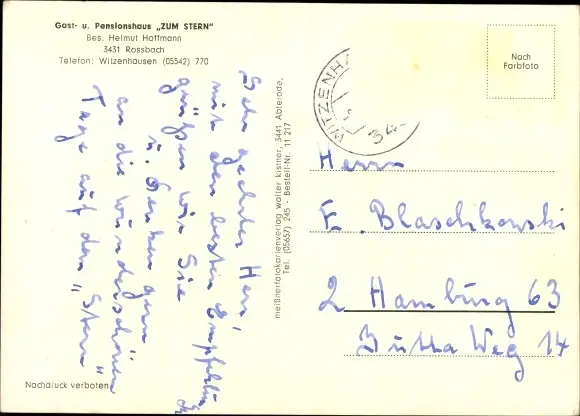 Gast- u. Pensionshaus „ZUM STERN"
Bes. Helmut Hoffmann
3431 Rossbach
Telefon: Witzenhausen (05542) 770
Sehr geehrter Herr,
mit den besten Empfehlungen
grüßen wir Sie
u. denken gern
an die wunderschönen
Tage auf dem „Stern"
Nachdruck verboten
meißnerfotokartenverlag walter kistner, 3441 Abterode,
Tel. (05657) 245 - Bestell-Nr. 11 217
WITZENHA
34
Nach
Farbfoto
Herrn
E. Blaschkowski
2 Hamburg 63
Jutta Weg 14